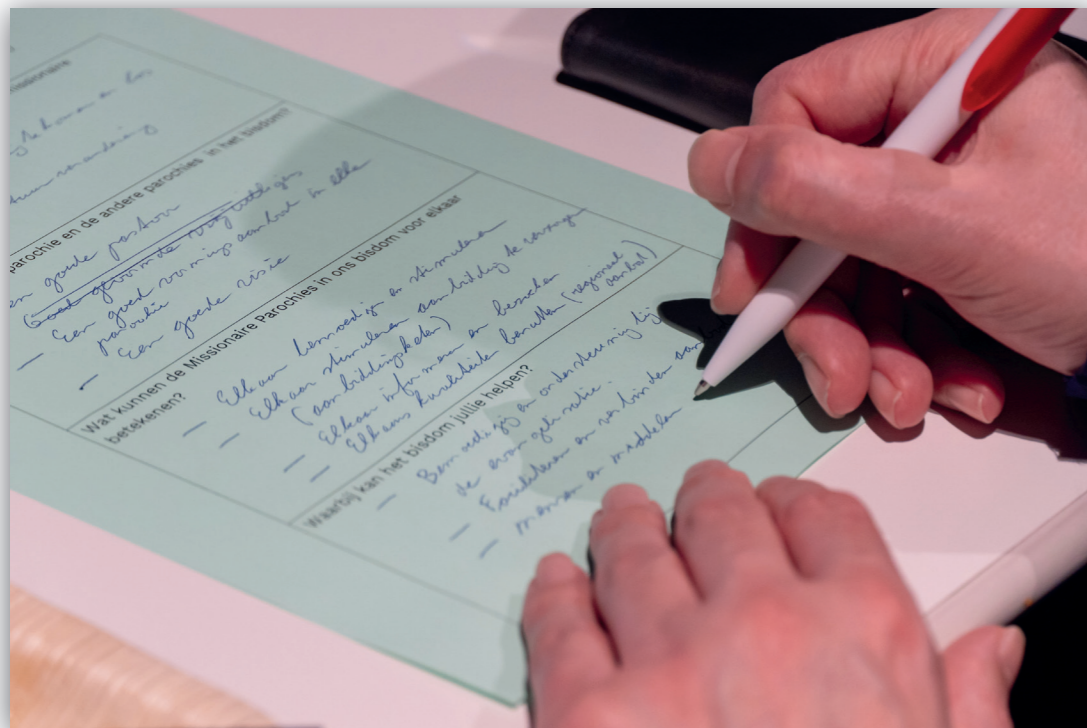 missionaire
parochie en de andere parochies in het bisdom?
goede pastor
Een goed vormingsaanbod in elke
parochie
Een goede visie
Wat kunnen de Missionaire Parochies in ons bisdom voor elkaar
betekenen?
— Elkaar bemoedigen en stimuleren
— Elkaar stimuleren aanbidding te verzorgen
(aanbiddingsketen)
— Elkaar informeren en bezoeken
— Elkaars kwaliteiten benutten (regionaal
aanbod)
Waarbij kan het bisdom jullie helpen?
— Bemoediging en ondersteuning bij
de evangelisatie.
— Faciliteren en verbinden aan
— mensen en middelen